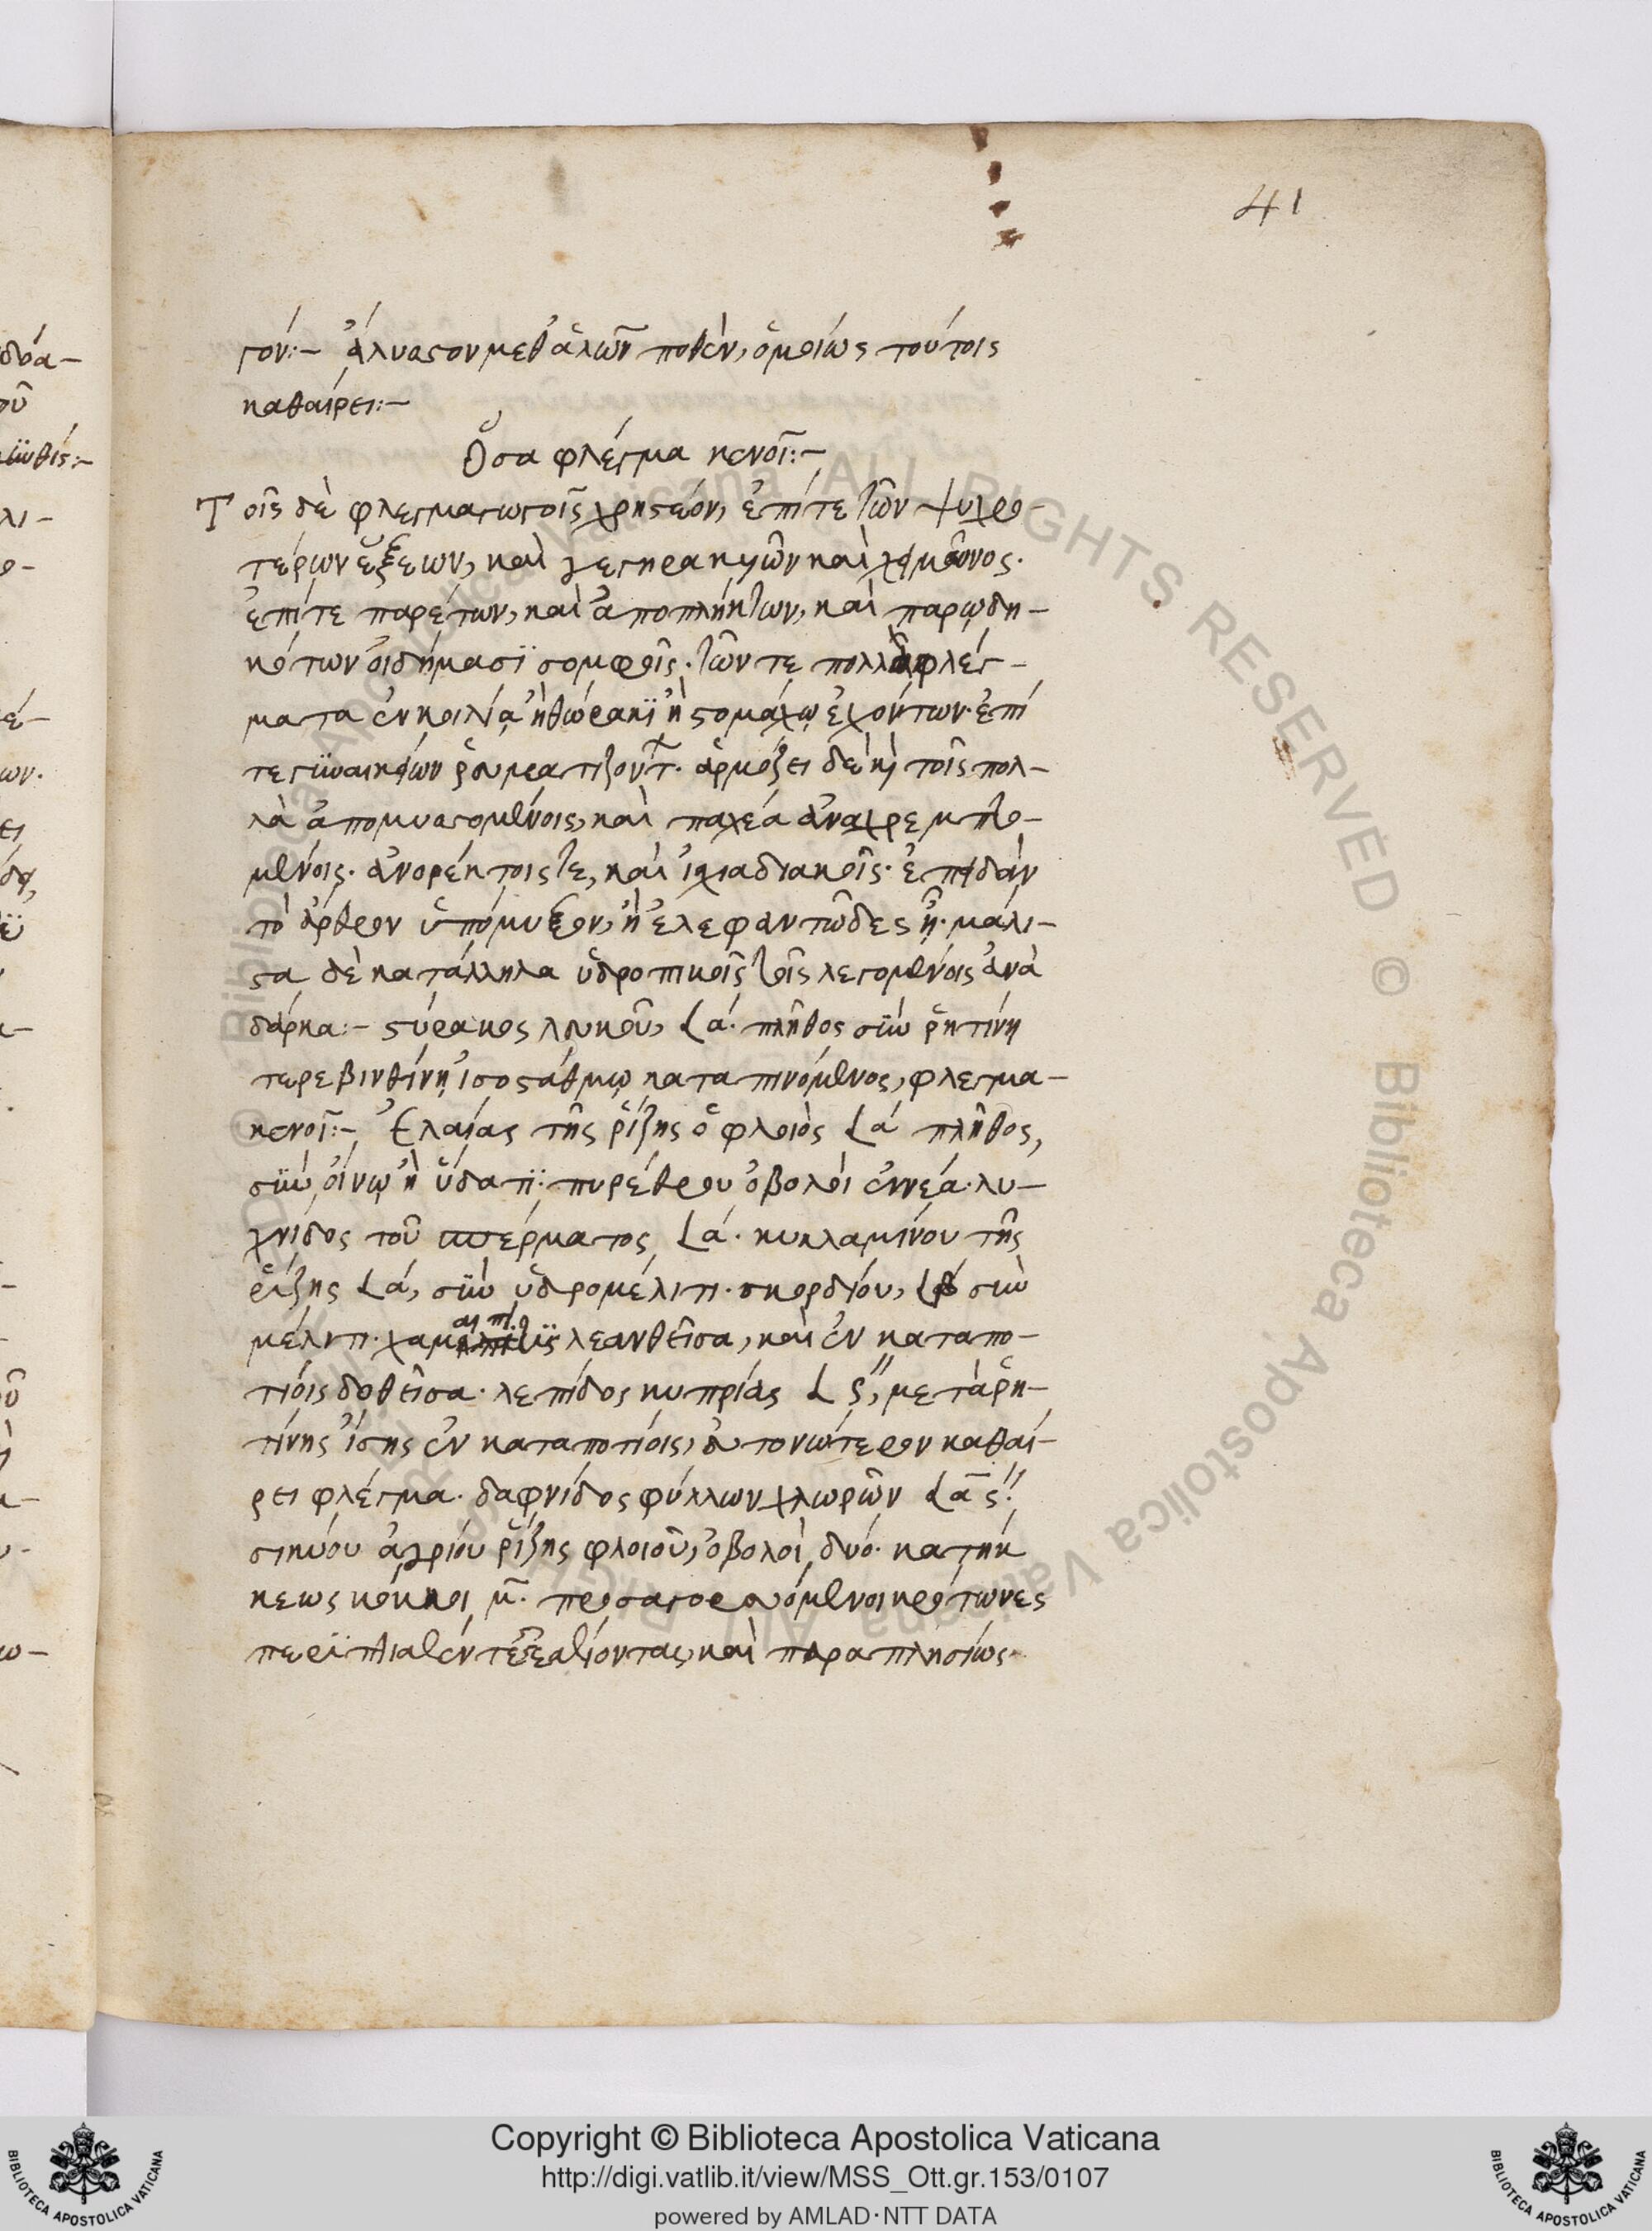 41
γόν:- ἄλυπον μεθ' ἁλῶν ποθὲν, ὁμοίως τούτοις
καθαίρει:-
Ὅσα φλέγμα κενοῖ:-
Τοῖς δὲ φλεγμαγωγοῖς χρηστέον, ἐπί τε τῶν ψυχρο-
τέρων ἕξεων, καὶ γεγηρακυιῶν καὶ χειμῶνος.
ἐπί τε παρέτων, καὶ ἀποπλήκτων, καὶ παρῳδη-
κότων οἰδήμασϊ σομφοῖς. τῶν τε πολλὰ φλέγ-
ματα ἐν κοιλίᾳ ἢ θώρακϊ ἢ στομάχῳ ἐχόντων. ἐπί
τε γυναικείων ῥευματιζοντ. ἁρμόζει δὲ κὶ τοῖς πολ-
λὰ ἀπομυσσομένοις, καὶ παχέα ἀναχρεμπτο-
μένοις. ἀνορέκτοις τε, καὶ ἰσχιαδικοῖς. ἐπειδὰν
τὸ ἄρθρον ὑπόμυξον, ἢ ἐλεφαντῶδες ᾖ. μάλι-
στα δὲ κατάλληλα ὑδροπικοῖς τοῖς λεγομένοις ἀνὰ
σάρκα:- στύρακος λευκοῦ, Lά. πλῆθος σϋν ῥητίνῃ
τερεβινθίνῃ ἰσοστάθμῳ καταπινόμενος, φλεγμα-
κενοῖ:- Ἐλαίας τῆς ῥίζης ὁ φλοιὸς Lά πλῆθος,
σϋν οἴνῳ ἢ ὕδατϊ. πυρέθρου ὀβολοὶ ἐννέα. λυ-
χνίδος τοῦ σπέρματος Lά. κυκλαμίνου τῆς
ῥίζης Lά, σϋν ὑδρομέλιτι. σκορδίου, Lβ σϋν
μέλιτι. χαμαιπίτυς λεανθεῖσα, καὶ ἐν καταπο-
τίοις δοθεῖσα. λεπίδος κυπρίας L ς'', μετὰ ῥη-
τίνης ἴσης ἐν καταποτίοις, εὐτονώτερον καθαί-
ρει φλέγμα. δαφνίδος φύλλων χλωρῶν Lᾱ ς''.
σικύου ἀγρίου ῥίζης φλοιοῦ, ὀβολοὶ δύο. κατ ἠκ
κεως κόκκοι μ̄. προσαγορευόμενοι κρότωνες
καὶ παραπλησίως.
Copyright © Biblioteca Apostolica Vaticana
http://digi.vatlib.it/view/MSS_Ott.gr.153/0107
powered by AMLAD·NTT DATA